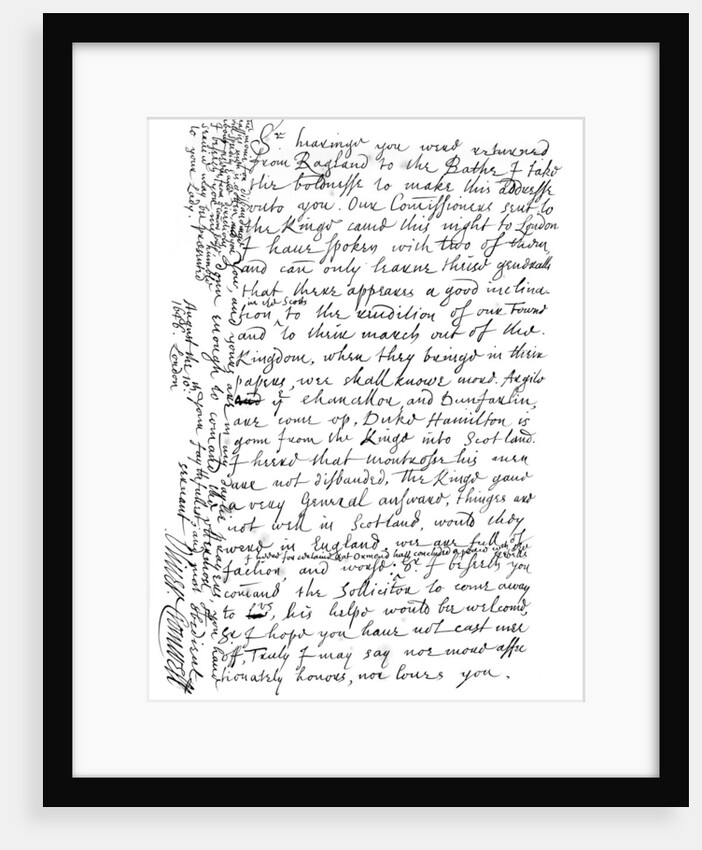 Sr hearinge you were returned
from Ragland to the Bathe I take
the boldnesse to make this addresse
unto you. Our Comissioners sent to
the Kinge came this night to London
I have spoken with two of them
and can only learne theise generalls
that there appeares a good inclina-
in the Scotts
tion to the rendition of our Townes
and to their march out of the
Kingdom, when they bringe in their
papers, wee shall knowe more. Argile
and ye chancellor, and Dunfarlin,
are come up, Duke Hamilton is
gonn from the Kinge into Scotland.
I heere that montrosse his men
are not disbanded, the Kinge gave
a very General answare, thinges are
not well in Scotland, would they
were in England wee are full of
faction, and worse. Sr I beseech you
comand the Sollicitor to come away
to us, his helpe would bee welcome,
Sr I hope you have not cast mee
off, Truly I may say nor more affec
tionately honors, nor loves you.
You, and yours are in my daylie prayers, you have
donn enough to comand the uttermost of
your faythfullest, and most obedient
servant
Oliver Cromwell
August the 10th
1646. London
I beseech you my humble
service may be presented
to your Lady.